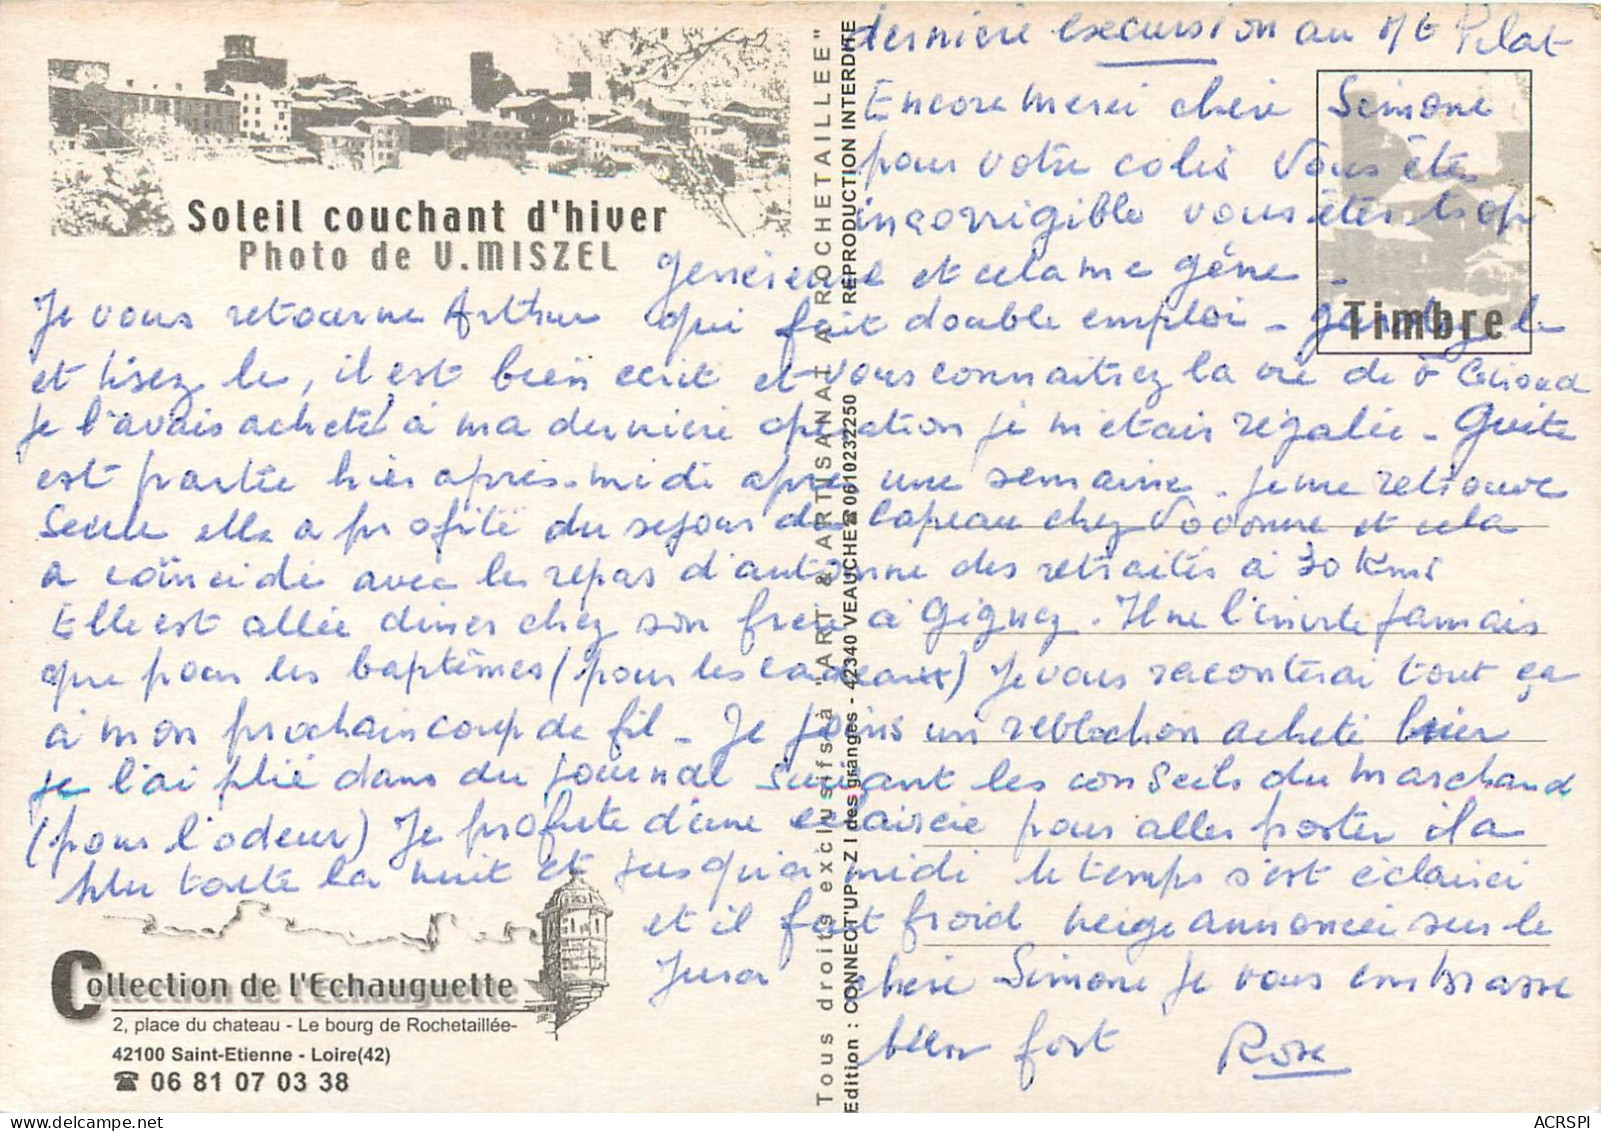 dernière excursion au Mt Pilat
Encore merci chère Simone
pour votre colis Vous êtes
incorrigible vous êtes trop
généreuse et cela me gêne -
Je vous retourne Arthur qui fait double emploi - gardez le
et lisez le, il est bien écrit et vous connaitrez la vie de
je l'avais acheté à ma dernière opération je m'étais régalée - Guite
est partie hier après-midi après une semaine. Je me retrouve
seule elle a profité du séjour de chez et cela
a coïncidé avec les repas d'automne des retraités à 30 Kms
Elle est allée diner chez son frère à Gignez. Il ne l'invite jamais
que pour les baptêmes (pour les cadeaux) Je vous raconterai tout ça
à mon prochain coup de fil - Je joins un reblochon acheté hier
je l'ai plié dans du journal suivant les conseils du marchand
(pour l'odeur) Je profite d'une eclaircie pour aller poster il a
plu toute la nuit et jusqu'à midi le temps s'est éclairci
et il fait froid neige annoncée sur le
Jura chère Simone je vous embrasse
bien fort Rose
Soleil couchant d'hiver
Photo de V.MISZEL
Timbre
Collection de l'Echauguette
2, place du chateau - Le bourg de Rochetaillée-
42100 Saint-Etienne - Loire(42)
☎ 06 81 07 03 38
Tous droits exclusifs à "ART & ARTISANAT A ROCHETAILLEE"
Edition : CONNECT'UP - Z I des granges - 42340 VEAUCHE ☎ 0610232250 REPRODUCTION INTERDITE
ACRSPI